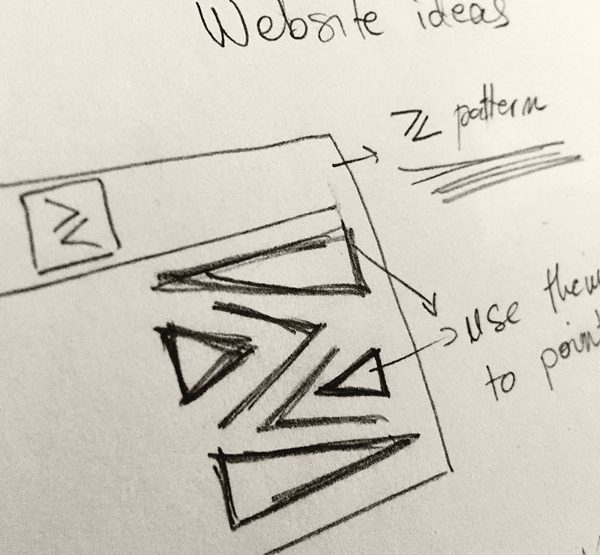 Website ideas
Z pattern
use them
to point